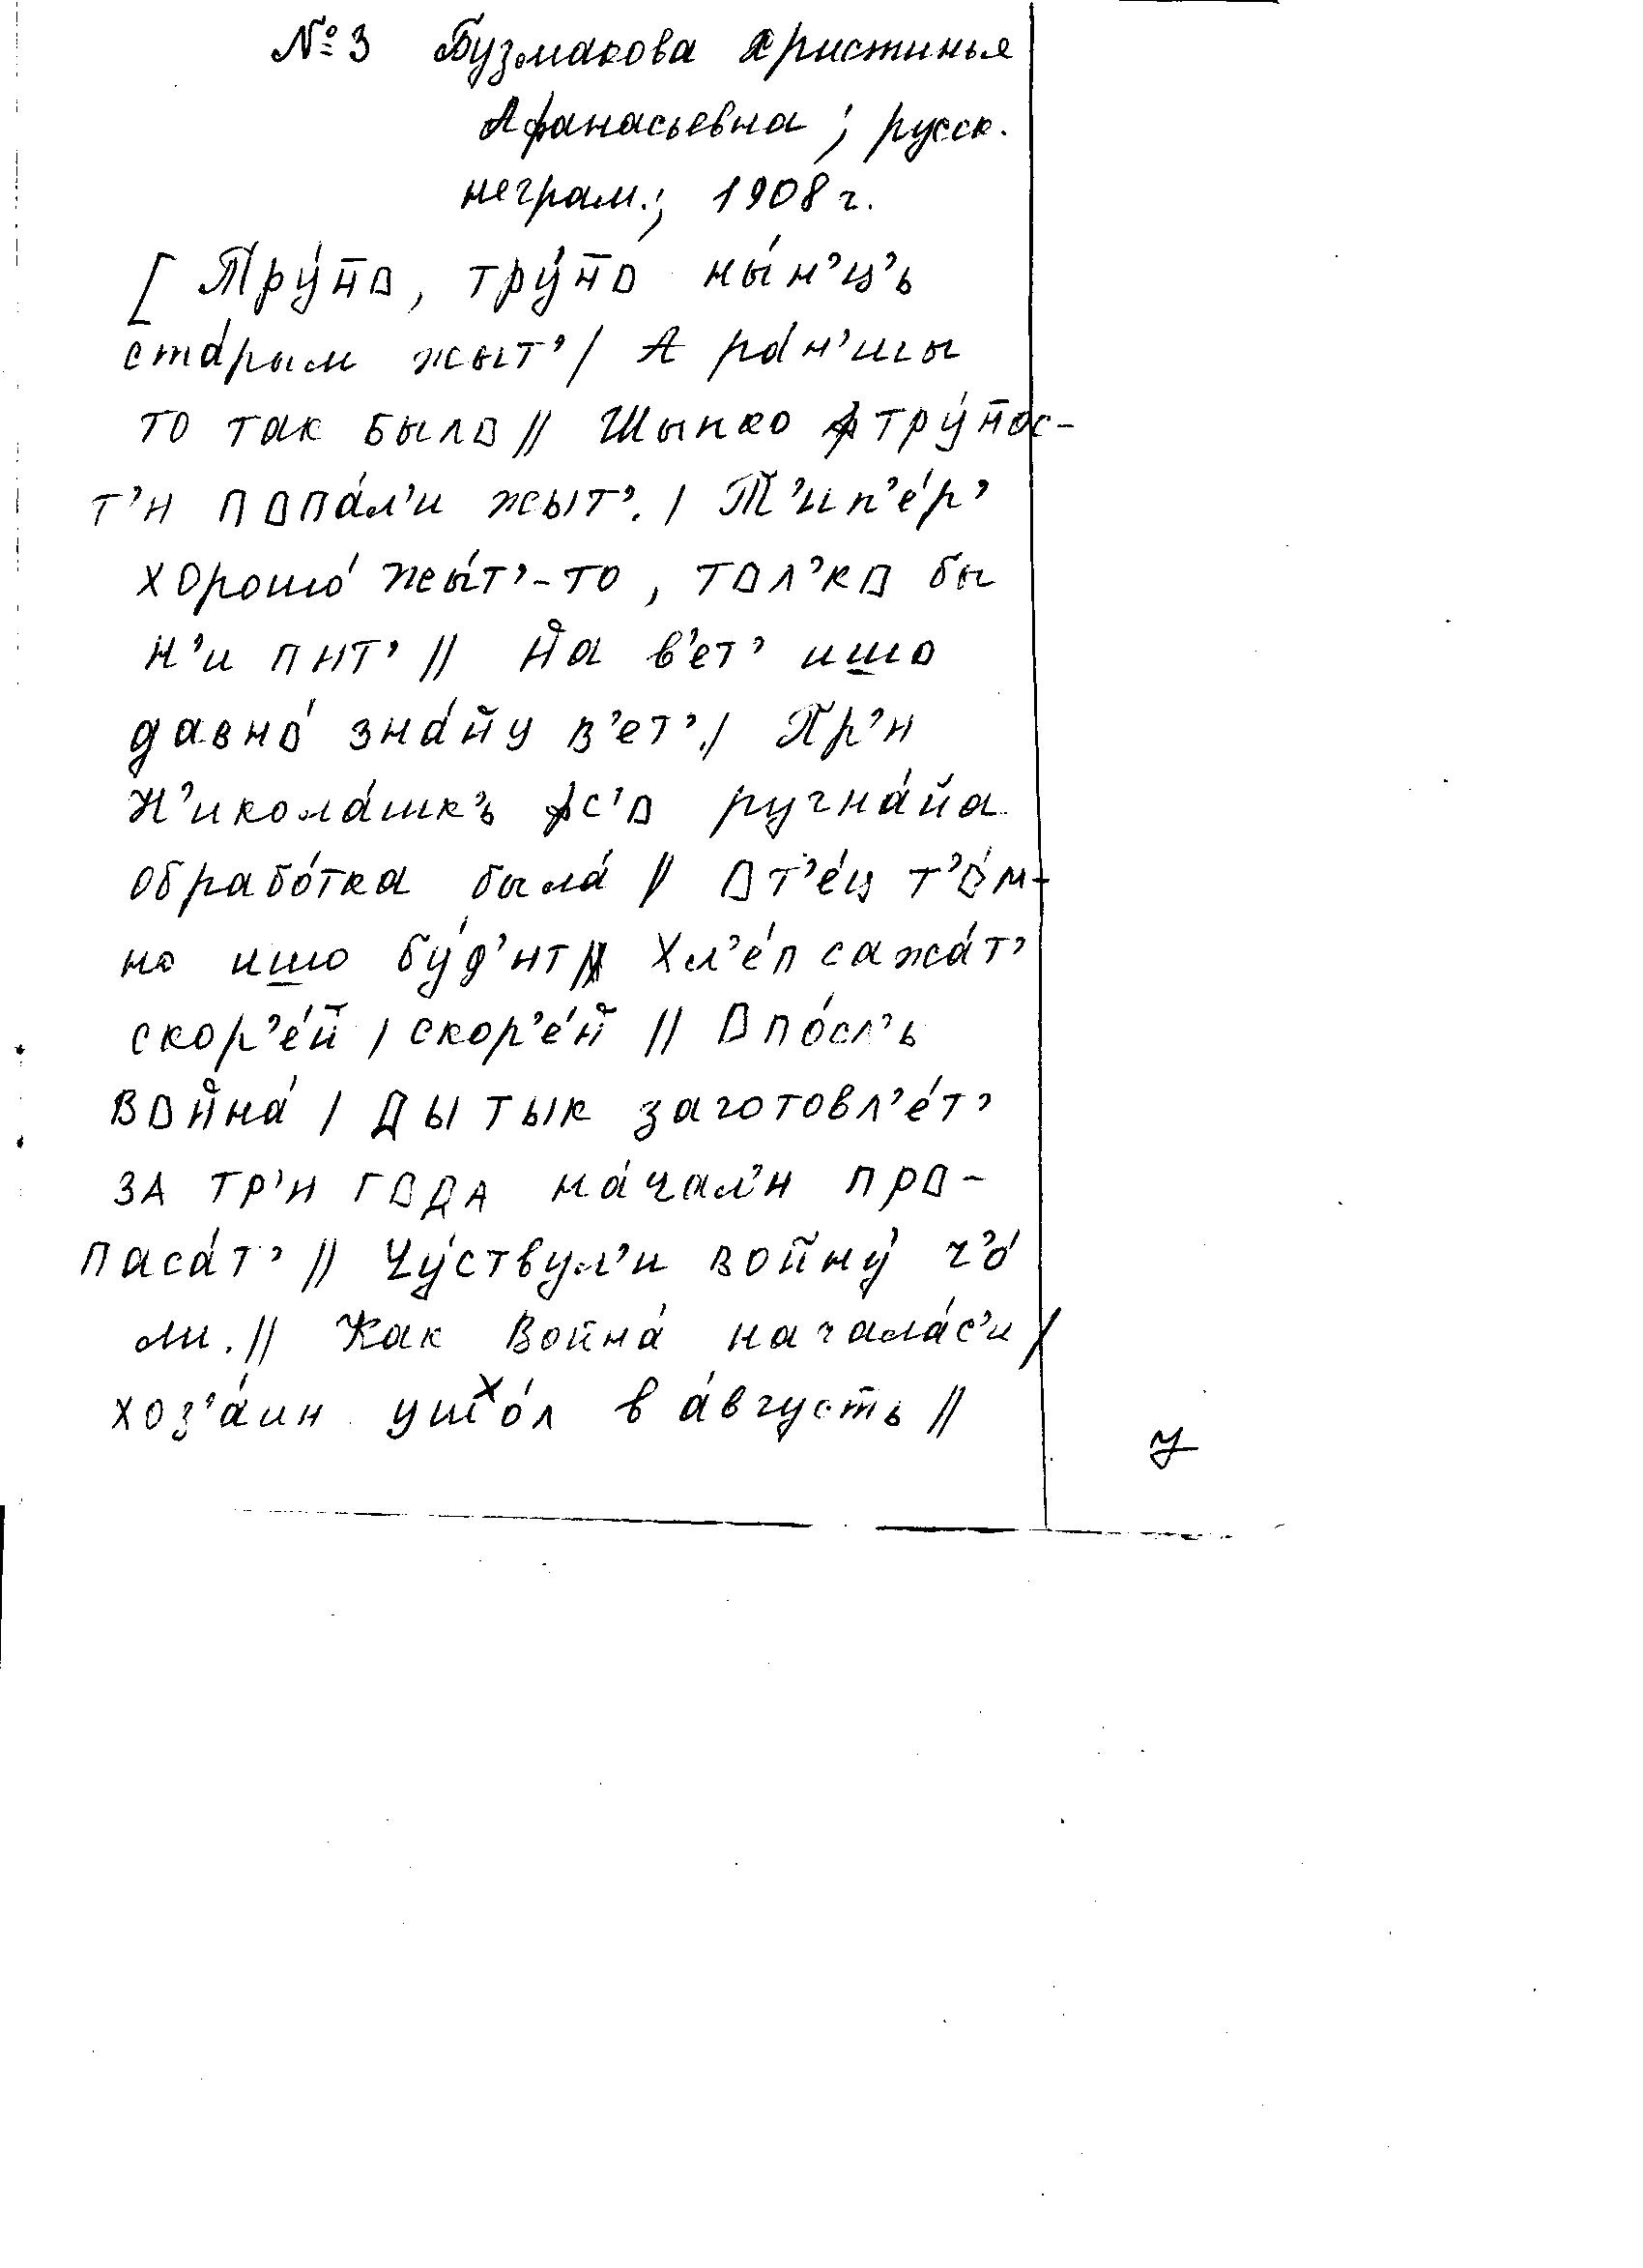 № 3 Бузмакова Христинья
Афанасьевна; русск.
неграм.; 1908 г.
[Тру́дnо, тру́дnо ны́н'ц'ь
ста́рым жыт' / А ра́н'шы
то так было // Шыпко ф тру́dnос-
т'и попа́л'и жыт'. / Т'ип'е́р'
хорошо́ жы́т'-то, тол'ко бы
н'и пит' // Йа в'ет' ишо
давно́ зна́йу в'ет'. / Пр'и
Н'икола́шк'ь фс'о ручна́йа
обрабо́тка была́ // От'е́ц т'о́м-
но ишо бу́д'ит // Хл'е́п сажа́т'
скор'е́й / скор'е́й // Опо́сл'ь
война́ / Ды тык заготовл'е́т'
за тр'и года на́чал'и про-
паса́т' // Чу́ствул'и войну́ ч'о́
ли. // Как война́ начала́с'и /
хоз'а́ин ушо́л в а́вгусть //